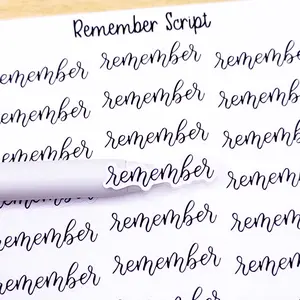 Remember Script
emember remember remember
emember remember remember
emember remember remember
remember remember
emember remember remember
remember remember remember
remember